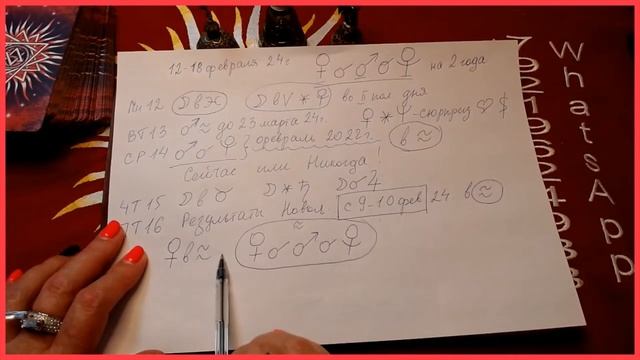 12-18 февраля 24 г ♀☌♂☌♇ на 2 года
Пн 12 ☽ в ♓ ☽ в V ⚹ ♀ во II пол дня
ВТ 13 ♂ ♒ до 23 марта 24г. ♀ ⚹ ♆ - сюрприз ♡ $
СР 14 ♂ ☌ ♀ } февраль 2022г. в ♒
Сейчас или Никогда!
ЧТ 15 ☽ в ♉ ☽ ⚹ ♄ ☽ ☌ ♃
ПТ 16 Результаты Новол с 9-10 фев 24 в ♒
♀ в ♒ ♀ ☌ ♂ ☌ ♇
♒
WhatsApp